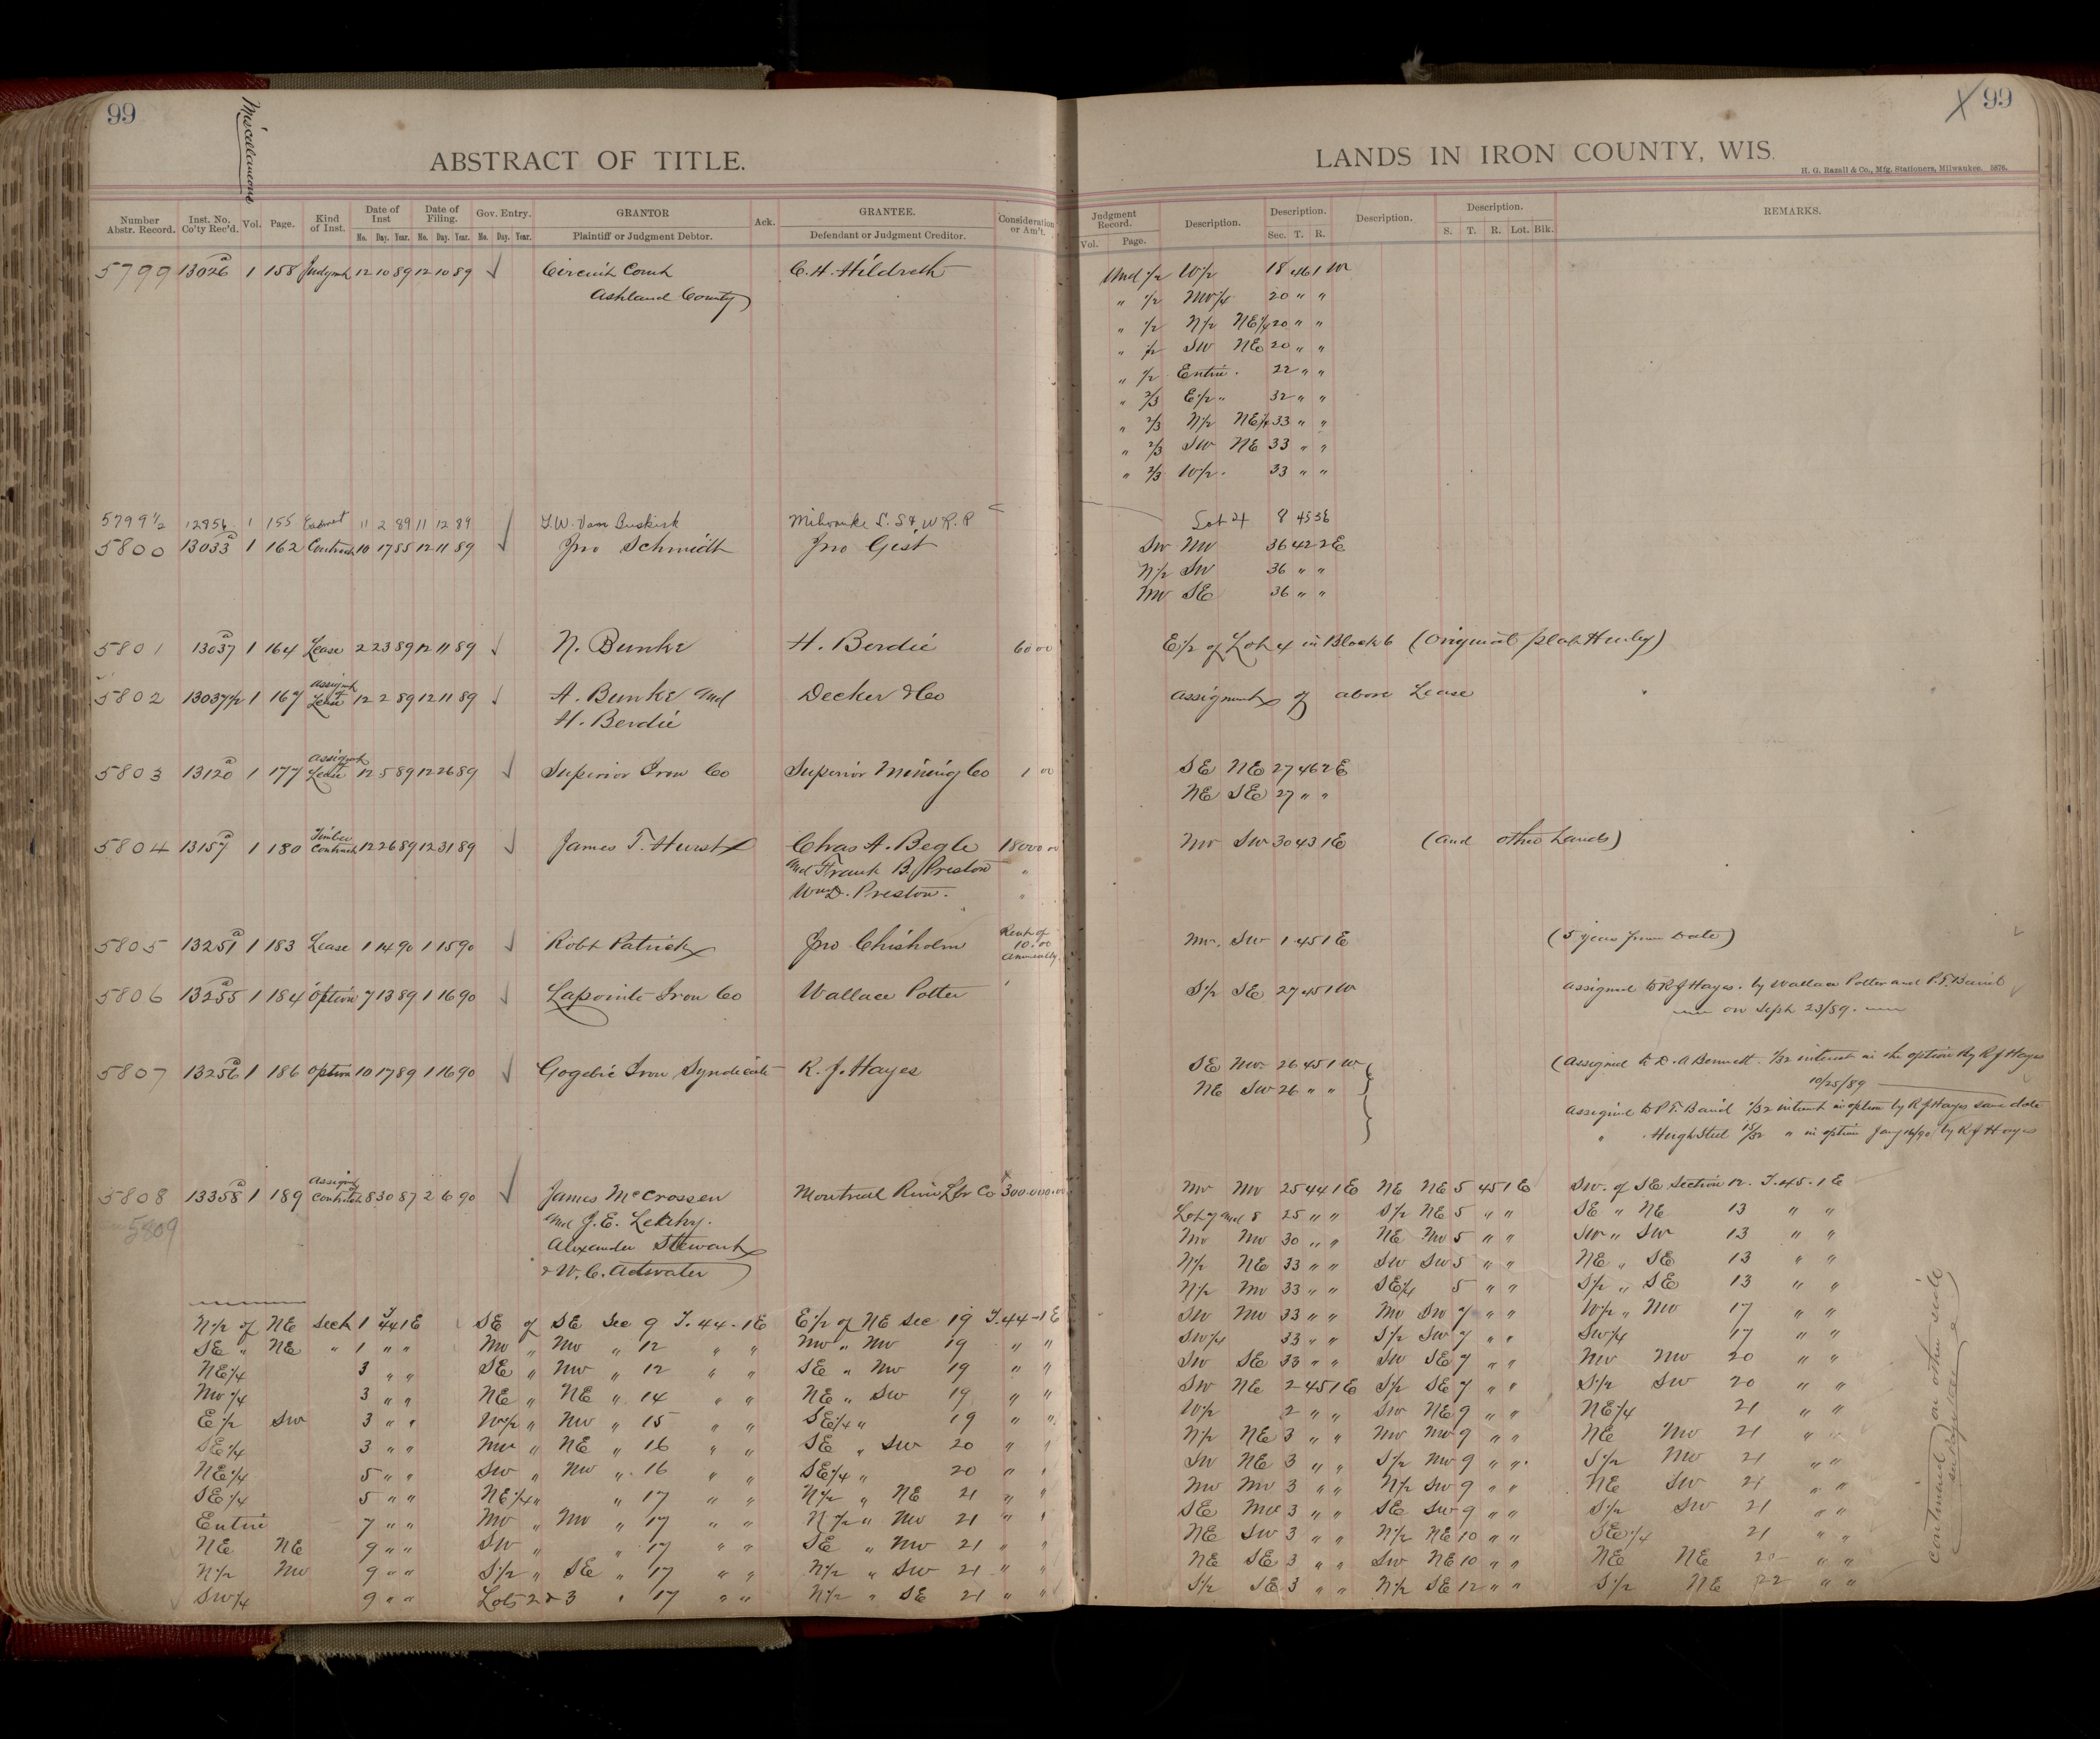 99
Miscellaneous
ABSTRACT OF TITLE.
Number Abstr. Record. Inst. No. Co'ty Rec'd. Vol. Page. Kind of Inst. Date of Inst Mo. Day. Year. Date of Filing. Mo. Day. Year. Gov. Entry. Mo. Day. Year. GRANTOR Plaintiff or Judgment Debtor. Ack. GRANTEE. Defendant or Judgment Creditor. Consideration or Am't.
5799 13026 a 1 158 Judgmt 12 10 89 12 10 89 Circuit Court C. H. Hildreth
Ashland County
5799 1/2 12956 1 155 Easment 11 2 89 11 12 89 T. W. Van Buskirk Milwauke L. S & W R. R
5800 13033 a 1 162 Contract 10 17 85 12 11 89 Jno Schmidt Jno Gist
5801 13037 a 1 164 Lease 2 23 89 12 11 89 N. Bunke H. Berdie 60 00
5802 13037 1/2 1 167 Assignt of Lease 12 2 89 12 11 89 A. Bunke and Decker & Co
H. Berdie
5803 13120 a 1 177 Assignt of Lease 12 5 89 12 26 89 Superior Iron Co Superior Mining Co 1 00
5804 13157 a 1 180 Timber Contract 12 26 89 12 31 89 James T. Hurst Chas A. Begle 18000 00
and Frank B. Preston "
Wm D. Preston. "
5805 13251 a 1 183 Lease 1 14 90 1 15 90 Robt Patrick Jno Chisholm Rent of 10.00 annually.
5806 13255 a 1 184 Option 7 13 89 1 16 90 Lapointe Iron Co Wallace Potter
5807 13256 a 1 186 Option 10 17 89 1 16 90 Gogebic Iron Syndicate R. J. Hayes
5808 13358 a 1 189 Assignt of Contract 8 30 87 2 6 90 James McCrossen Montreal River Lbr Co 300.000.00
5809 and J. E. Leahy.
Alexander Stewart
& W. C. Atwater
N 1/2 of NE Sect 1 T 44 1E SE of SE Sec 9 T. 44-1E E 1/2 of NE Sec 19 T. 44-1E
SE " NE " 1 " " NW " NW " 12 " " NW " NW 19 " "
NE 1/4 3 " " SE " NW " 12 " " SE " NW 19 " "
NW 1/4 3 " " NE " NE " 14 " " NE " SW 19 " "
E 1/2 SW 3 " " W 1/2 " NW " 15 " " SE 1/4 " 19 " "
SE 1/4 3 " " NW " NE " 16 " " SE " SW 20 " "
NE 1/4 5 " " SW " NW " 16 " " SE 1/4 " 20 " "
SE 1/4 5 " " NE 1/4 " " 17 " " N 1/2 " NE 21 " "
Entire 7 " " NW " NW " 17 " " N 1/2 " NW 21 " "
NE NE 9 " " SW " " 17 " " SE " NW 21 " "
N 1/2 NW 9 " " S 1/2 " SE " 17 " " N 1/2 " SW 21 " "
SW 1/4 9 " " Lots 2 & 3 " 17 " " N 1/2 " SE 21 " "
X 99
LANDS IN IRON COUNTY, WIS.
H. G. Razall & Co., Mfg. Stationers, Milwaukee. 5876.
Judgment Record. Vol. Page. Description. Description. Sec. T. R. Description. Description. S. T. R. Lot. Blk. REMARKS.
Und 1/2 W 1/2 18 46 1 W
" 1/2 NW 1/4 20 " "
" 1/2 N 1/2 NE 1/4 20 " "
" 1/2 SW NE 20 " "
" 1/2 Entire. 22 " "
" 2/3 E 1/2 " 32 " "
" 2/3 N 1/2 NE 1/4 33 " "
" 2/3 SW NE 33 " "
" 2/3 W 1/2. 33 " "
Lot 4 8 45 3E
SW NW 36 42 2E
N 1/2 SW 36 " "
NW SE 36 " "
E 1/2 of Lot 4 in Block 6 (Original plat Hurley)
Assignment of above Lease
SE NE 27 46 2E
NE SE 27 " "
NW SW 30 43 1E (and other Lands)
NW. SW 1 45 1E (5 years from Date)
S 1/2 SE 27 45 1W Assigned to R J Hayes. by Wallace Potter and P. T. Baird
on Sept 23/89.
SE NW 26 45 1W (Assigned to D. A Bennett. 1/32 interest in the option By R J Hayes
NE SW 26 " " 10/25/89
Assigned to P. T. Baird 1/32 interest in option by R J Hayes same date
" Hugh Steel 15/32 " in option Jany 16/90 by R J Hayes
NW NW 25 44 1E NE NE 5 45 1E SW. of SE Section 12. T. 45. 1E
Lot 7 and 8 25 " " S 1/2 NE 5 " " SE " NE 13 " "
NW NW 30 " " NE NW 5 " " SW " SW 13 " "
N 1/2 NE 33 " " SW SW 5 " " NE " SE 13 " "
N 1/2 NW 33 " " SE 1/4 5 " " S 1/2 " SE 13 " "
SW NW 33 " " NW SW 7 " " W 1/2 " NW 17 " "
SW 1/4 33 " " S 1/2 SW 7 " " SW 1/4 17 " "
SW SE 33 " " SW SE 7 " " NW NW 20 " "
SW NE 2 45 1E S 1/2 SE 7 " " S 1/2 SW 20 " "
W 1/2 2 " " SW NE 9 " " NE 1/4 21 " "
N 1/2 NE 3 " " NW NW 9 " " NE NW 21 " "
SW NE 3 " " S 1/2 NW 9 " " S 1/2 NW 21 " "
NW NW 3 " " N 1/2 SW 9 " " NE SW 21 " "
SE NW 3 " " SE SW 9 " " S 1/2 SW 21 " "
NE SW 3 " " N 1/2 NE 10 " " SE 1/4 21 " "
NE SE 3 " " SW NE 10 " " NE NE " "
S 1/2 SE 3 " " N 1/2 SE 12 " " S 1/2 NE 22 " "
continued on other side